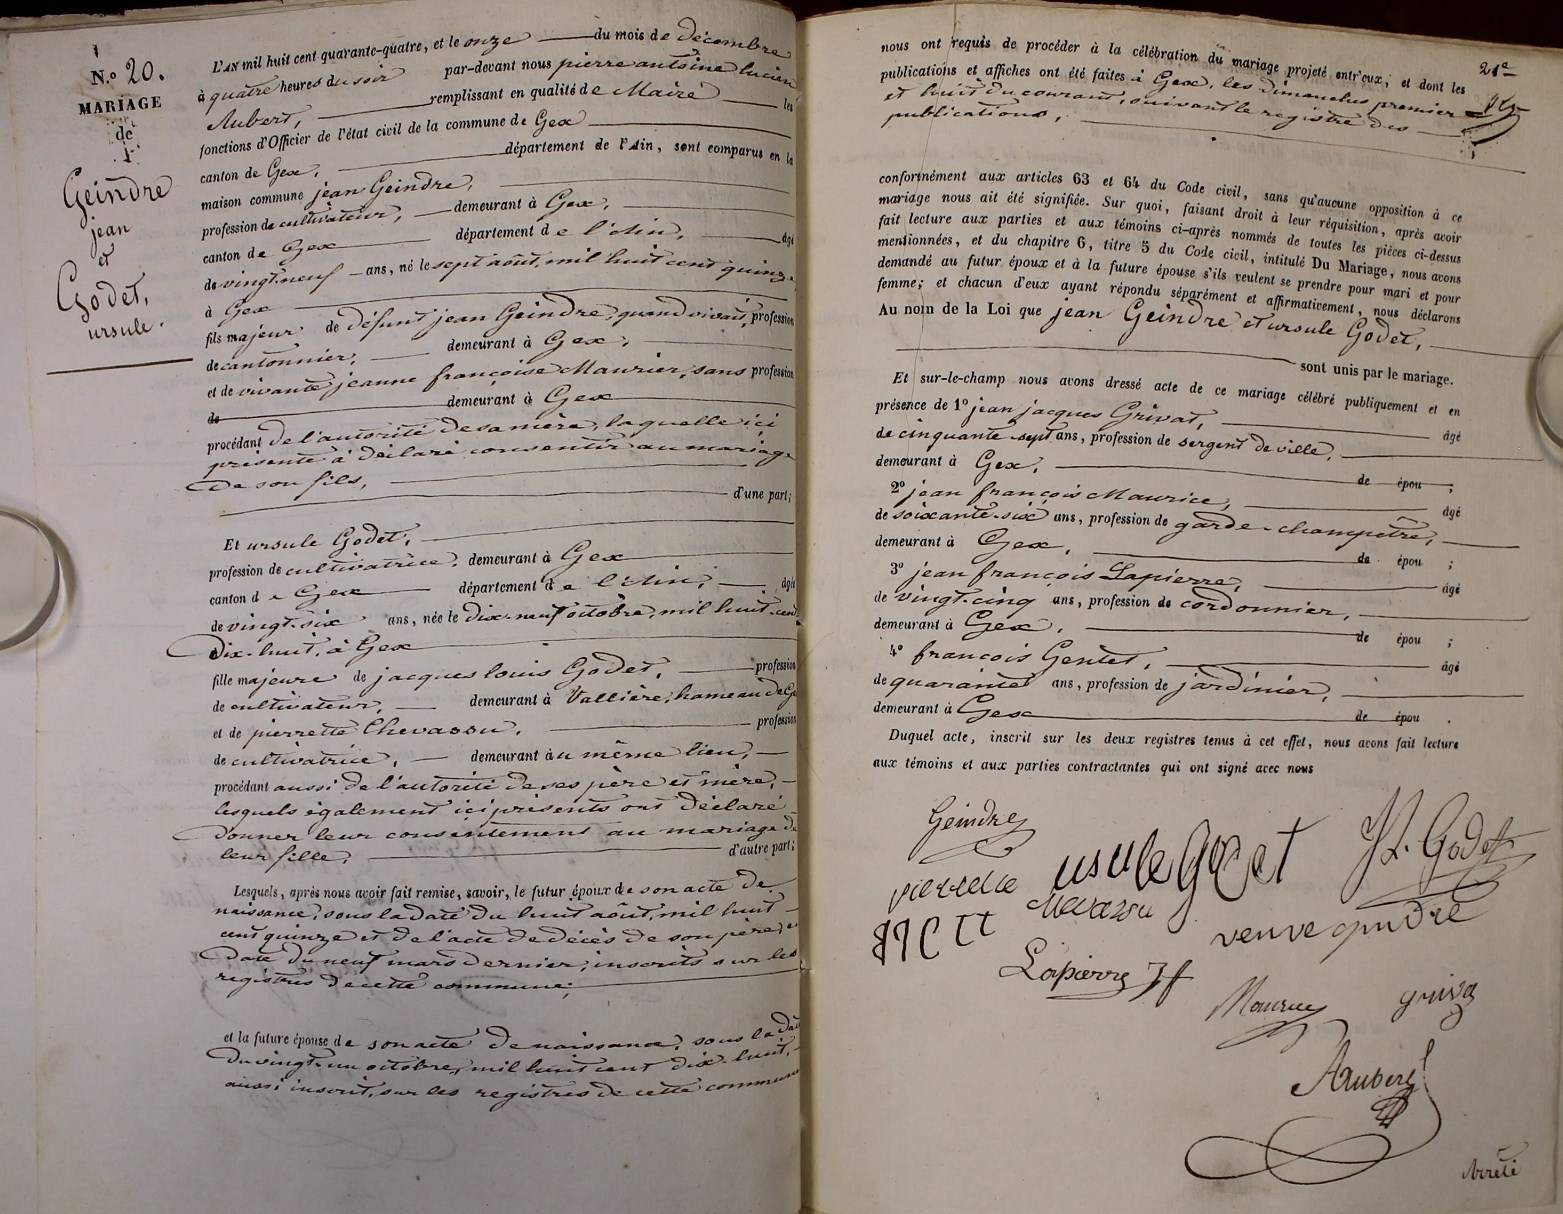 N.º 20.
MARIAGE
de
Geindre
jean
et
Godet,
ursule.
L'AN mil huit cent quarante-quatre, et le onze du mois de décembre
à quatre heures du soir par-devant nous pierre antoine lucien
Aubert, remplissant en qualité de Maire les
fonctions d'Officier de l'état civil de la commune de Gex
canton de Gex, département de l'Ain, sont comparus en la
maison commune jean Geindre,
profession de cultivateur, demeurant à Gex,
canton de Gex département de l'Ain, âgé
de vingt-neuf ans, né le sept août, mil huit cent quinze
à Gex
fils majeur de défunt jean Geindre, quand vivait, profession
de cantonnier, demeurant à Gex,
et de vivante jeanne françoise Maurier, sans profession
de demeurant à Gex
procédant de l'autorité de sa mère, laquelle ici
présente à déclaré consentir au mariage
de son fils,
d'une part;
Et ursule Godet,
profession de cultivatrice, demeurant à Gex
canton de Gex département de l'Ain, âgée
de vingt-six ans, née le dix-neuf octobre, mil huit cent
dix-huit, à Gex
fille majeure de jacques louis Godet, profession
de cultivateur, demeurant à Vallière, hameau de Ge
et de pierrette Chevassu, profession
de cultivatrice, demeurant au même lieu,
procédant aussi de l'autorité de ses père et mère,
lesquels également ici présents ont déclaré
donner leur consentement au mariage de
leur fille, d'autre part;
Lesquels, après nous avoir fait remise, savoir, le futur époux de son acte de
naissance, sous la date du huit août, mil huit
cent quinze et de l'acte de décès de son père, en
date du neuf mars dernier, inscrits sur les
registres de cette commune;
et la future épouse de son acte de naissance, sous la date
du vingt-un octobre, mil huit cent dix-huit,
aussi inscrit, sur les registres de cette commune
21e
nous ont requis de procéder à la célébration du mariage projeté entr'eux, et dont les
publications et affiches ont été faites à Gex, les dimanches premier
et huit du courant, suivant le registre des
publications,
conformément aux articles 63 et 64 du Code civil, sans qu'aucune opposition à ce
mariage nous ait été signifiée. Sur quoi, faisant droit à leur réquisition, après avoir
fait lecture aux parties et aux témoins ci-après nommés de toutes les pièces ci-dessus
mentionnées, et du chapitre 6, titre 5 du Code civil, intitulé Du Mariage, nous avons
demandé au futur époux et à la future épouse s'ils veulent se prendre pour mari et pour
femme; et chacun d'eux ayant répondu séparément et affirmativement, nous déclarons
Au nom de la Loi que jean Geindre et ursule Godet,
sont unis par le mariage.
Et sur-le-champ nous avons dressé acte de ce mariage célébré publiquement et en
présence de 1º jean jacques Grivat, âgé
de cinquante-sept ans, profession de sergent de ville,
demeurant à Gex, de épou ;
2º jean françois Maurice, âgé
de soixante-six ans, profession de garde-champêtre,
demeurant à Gex, de épou ;
3º jean françois Lapierre, âgé
de vingt-cinq ans, profession de cordonnier,
demeurant à Gex, de épou ;
4º françois Gentet, âgé
de quarante ans, profession de jardinier,
demeurant à Gex de épou .
Duquel acte, inscrit sur les deux registres tenus à cet effet, nous avons fait lecture
aux témoins et aux parties contractantes qui ont signé avec nous
Geindre
usule Godet
JL. Godet
pierrette
Chevassu
veuve
Lapierre Jf
Maurice
griva
Aubert
Arrêté